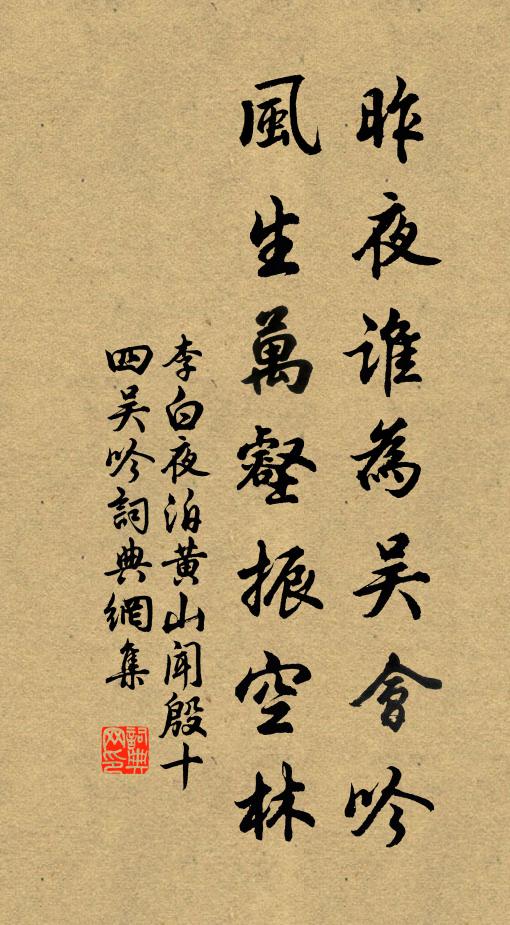 昨夜誰為吳會吟
風生萬壑振空林
李白夜泊黄山聞殷十
四吴吟詞典網集
詞典
网印